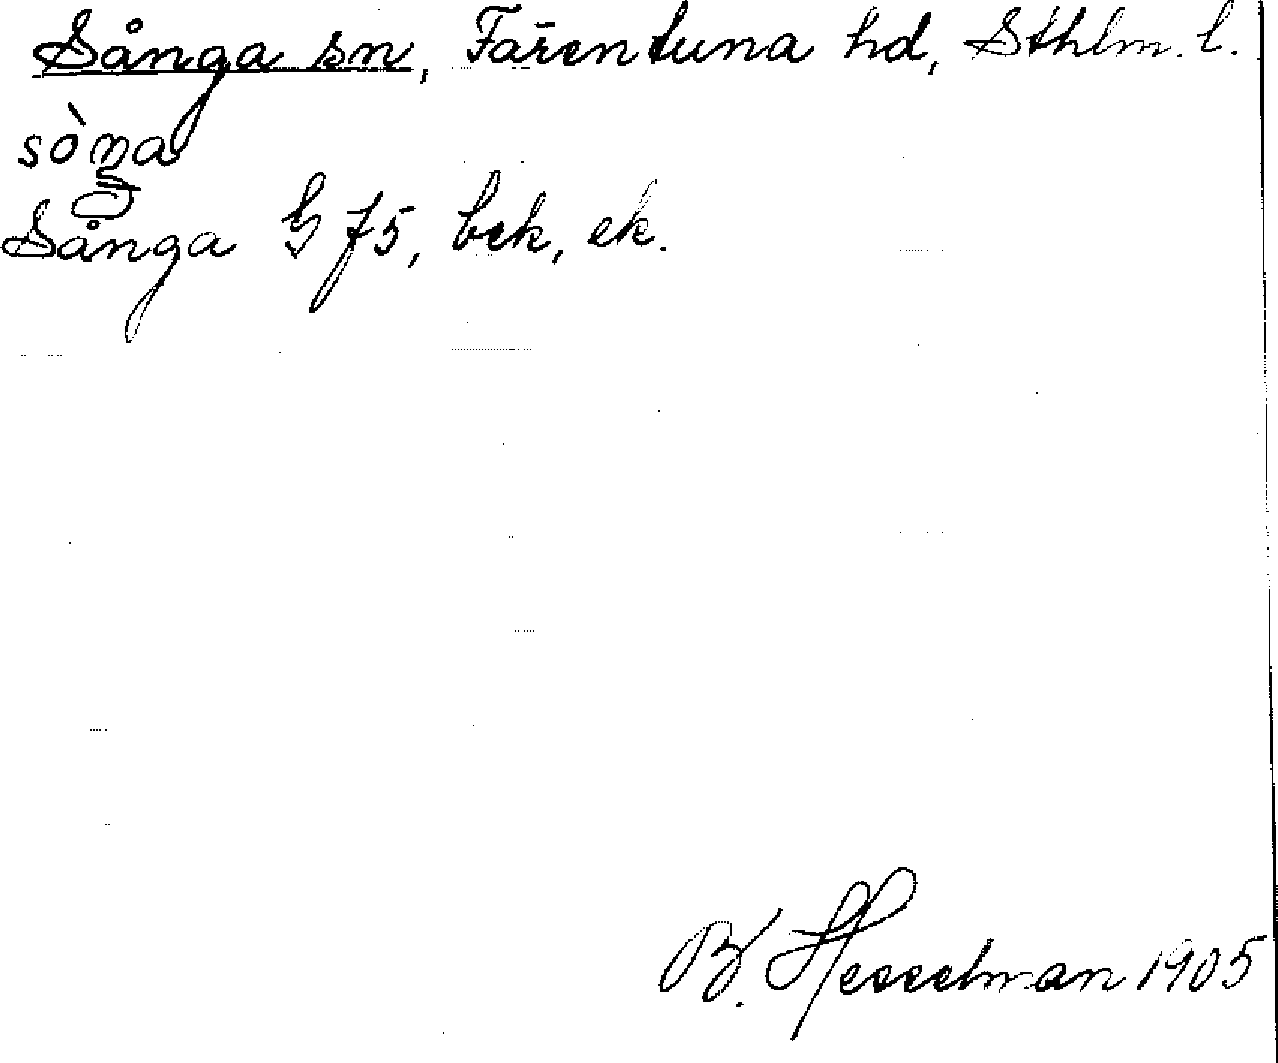 Sånga sn, Färentuna hd, Sthlm. l.
sòŋa
Sånga G 75, bek, ek.
B. Hesselman 1905